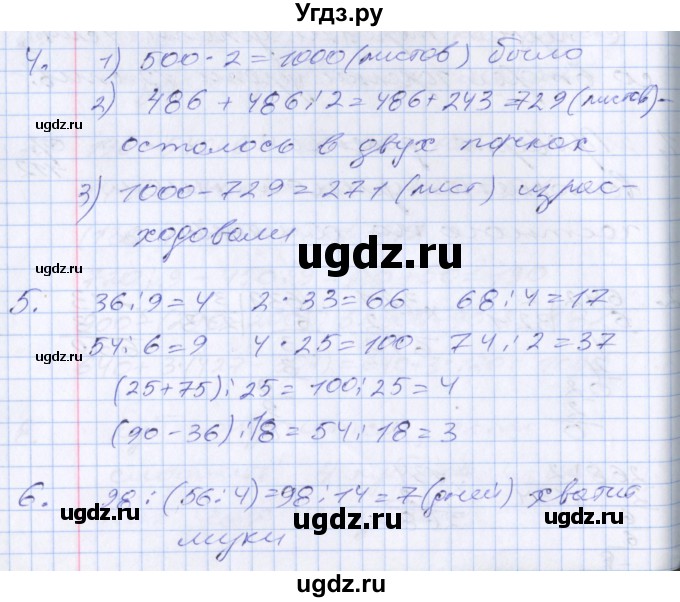 Угдз.ру
4. 1) 500 · 2 = 1000 (листов) было
2) 486 + 486 : 2 = 486 + 243 = 729 (листов) -
ugdz.ru ugdz.ru
осталось в двух пачках
3) 1000 - 729 = 271 (лист) израс-
ходовали
ugdz.ru ugdz.ru
5. 36 : 9 = 4 2 · 33 = 66 68 : 4 = 17
54 : 6 = 9 4 · 25 = 100. 74 : 2 = 37
ugdz.ru
(25 + 75) : 25 = 100 : 25 = 4
ugdz.ru
(90 - 36) : 18 = 54 : 18 = 3
ugdz.ru
6. 98 : (56 : 4) = 98 : 14 = 7 (дней) хватит
ugdz.ru ugdz.ru
муки
ugdz.ru
Угдз.ру